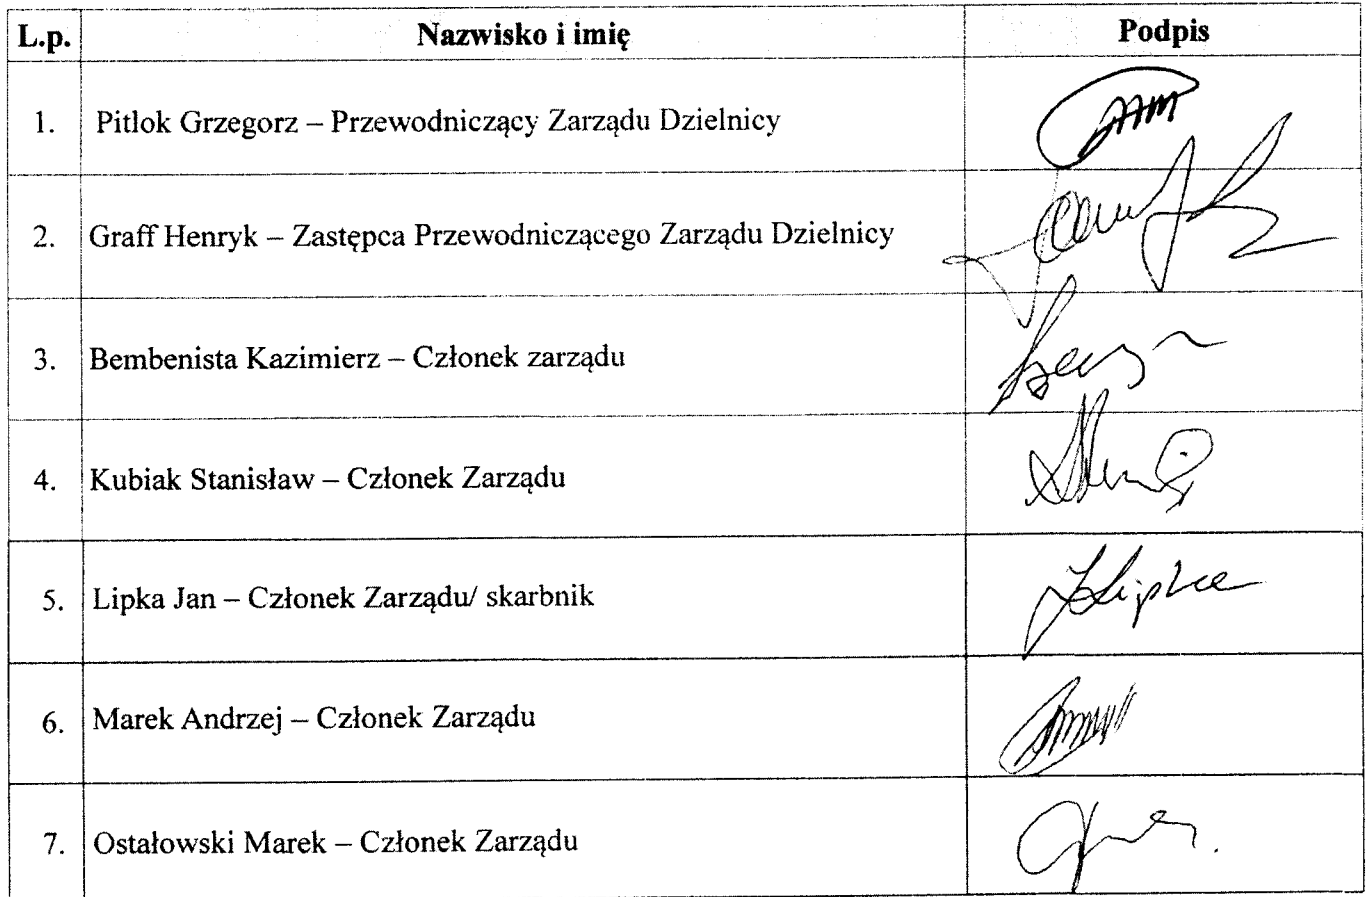 L.p. Nazwisko i imię Podpis
1. Pitlok Grzegorz – Przewodniczący Zarządu Dzielnicy
2. Graff Henryk – Zastępca Przewodniczącego Zarządu Dzielnicy
3. Bembenista Kazimierz – Członek zarządu
4. Kubiak Stanisław – Członek Zarządu
5. Lipka Jan – Członek Zarządu/ skarbnik JLipka
6. Marek Andrzej – Członek Zarządu
7. Ostałowski Marek – Członek Zarządu